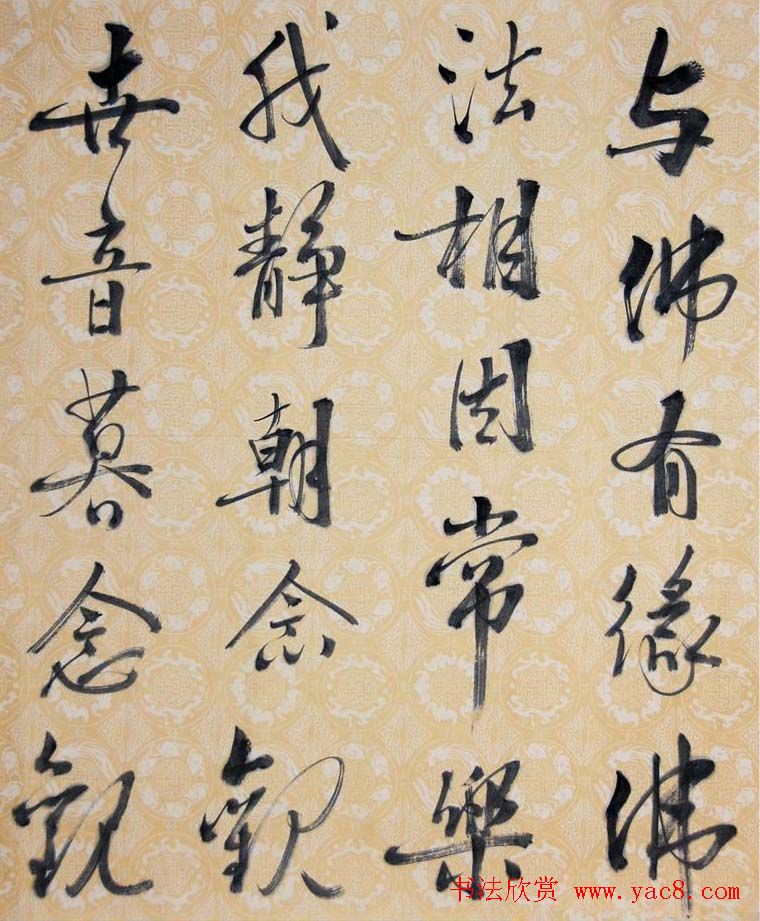 与佛有缘佛
法相因常樂
我静朝念觀
世音暮念觀
书法欣赏 www.yac8.com